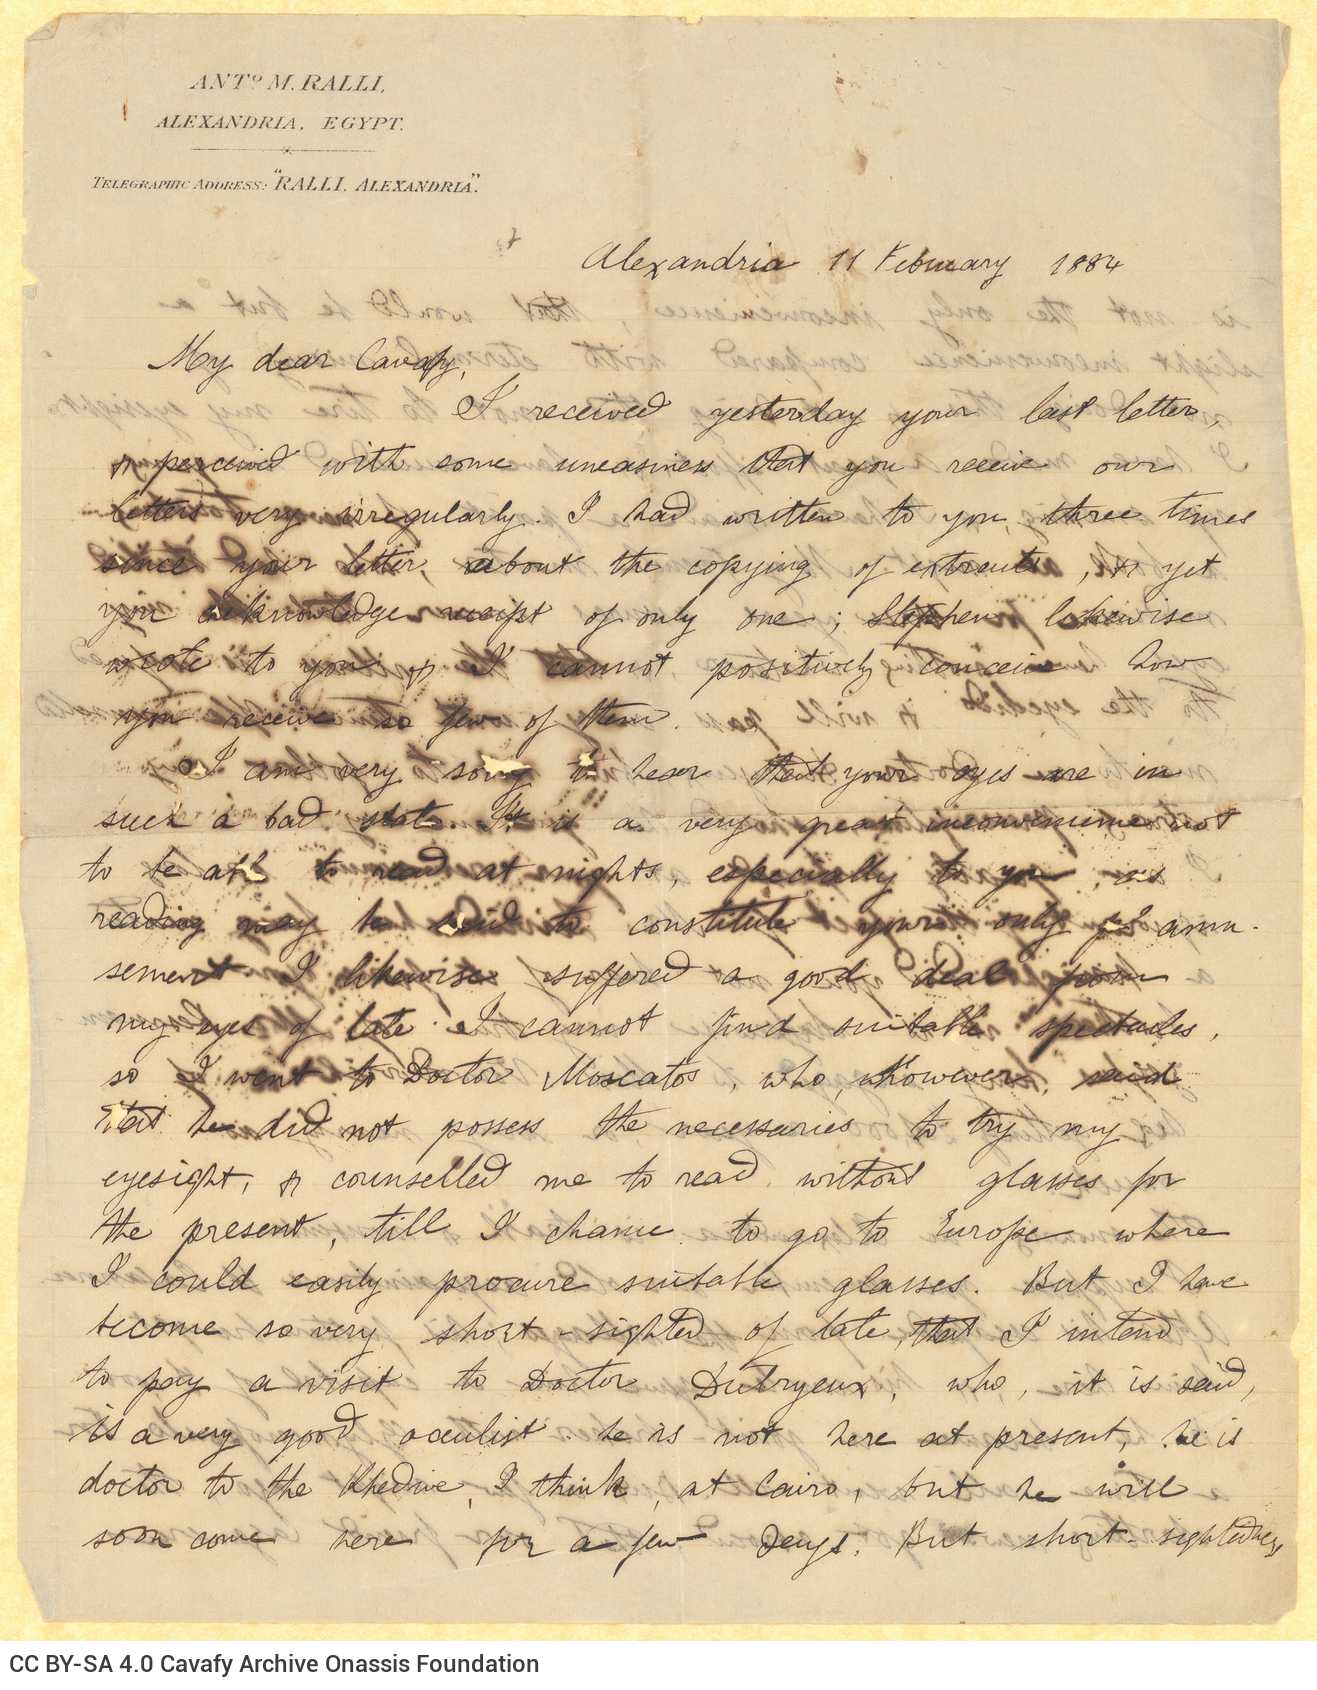 ANTº M. RALLI,
ALEXANDRIA, EGYPT.
TELEGRAPHIC ADDRESS: "RALLI, ALEXANDRIA".
Alexandria 11 February 1884
My dear Cavafy,
I received yesterday your last letter,
& perceived with some uneasiness that you receive our
letters very irregularly. I had written to you three times
since your letter, about the copying of extracts, & yet
you acknowledge receipt of only one; Stephen likewise
wrote to you & I cannot positively conceive how
you receive so few of them.
I am very sorry to hear that your eyes are in
such a bad state. It is a very great inconvenience not
to be able to read at nights, especially to you, as
reading may be said to constitute your only amu-
sement I likewise suffered a good deal from
my eyes of late. I cannot find suitable spectacles,
so I went to Doctor Moscatos, who, however, said
that he did not possess the necessaries to try my
eyesight, & counselled me to read without glasses for
the present, till I chance to go to Europe where
I could easily procure suitable glasses. But I have
become so very short-sighted of late, that I intend
to pay a visit to Doctor Dutryeux, who, it is said,
is a very good oculist. he is not here at present, he is
doctor to the Khedive, I think, at Cairo, but he will
soon come here for a few days. But short-sightedness
CC BY-SA 4.0 Cavafy Archive Onassis Foundation